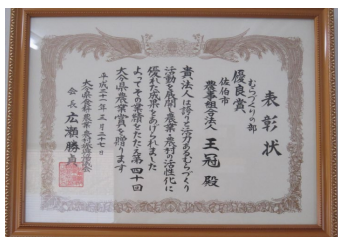 表彰状
むらづくりの部
優良賞
佐伯市
農事組合法人 王冠 殿
貴法人は誇りと活力あるむらづくり
活動を展開し農業・農村の活性化に
優れた成果をあげられました
よってその業績をたたえ第四十回
大分県農業賞を贈ります
平成三十一年三月二十七日
会長 広瀬勝貞